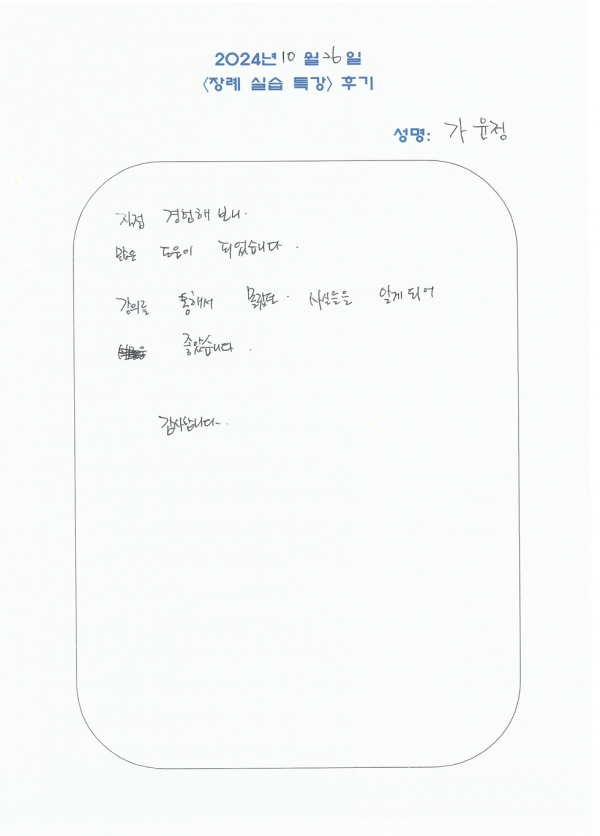 2024년 10월 26일
<장례 실습 특강> 후기
성명: 가윤정
직접 경험해 보니.
많은 도움이 되었습니다.
강의를 통해서 몰랐던. 사실들을 알게 되어
좋았습니다.
감사합니다.